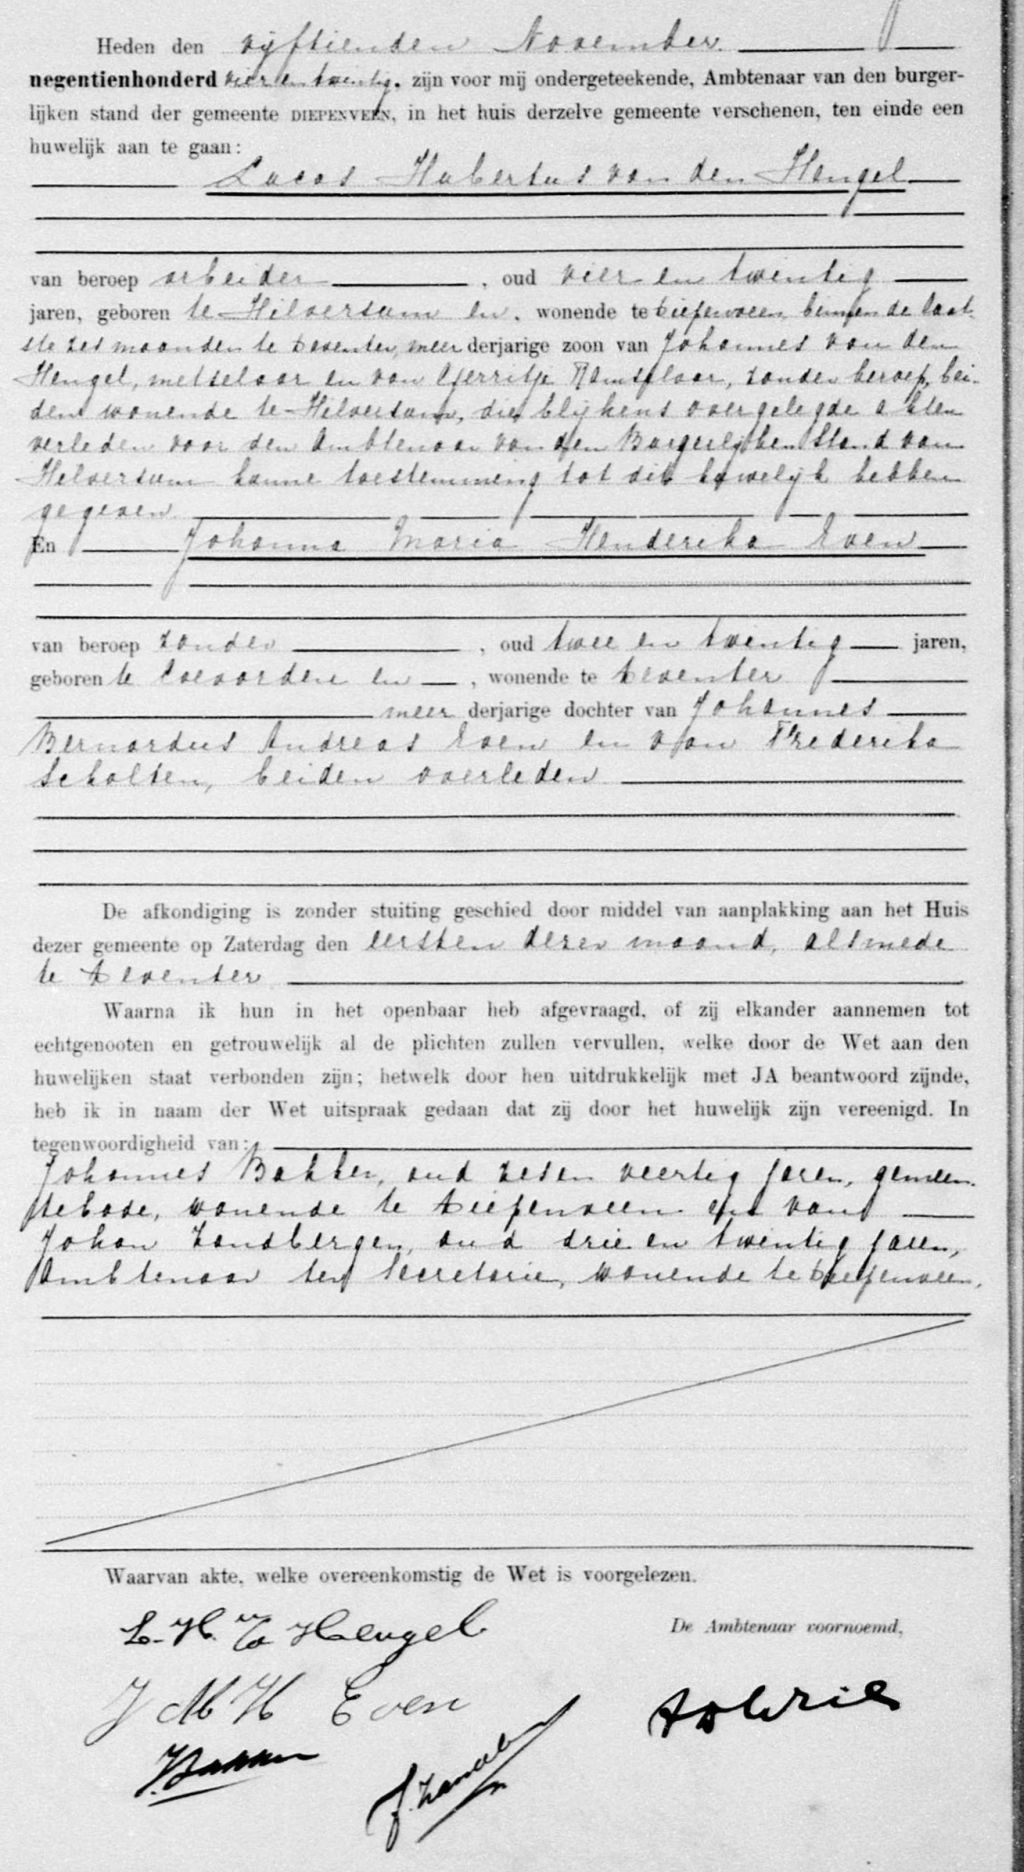 Heden den vijftienden November
negentienhonderd vier en twintig, zijn voor mij ondergeteekende, Ambtenaar van den burger-
lijken stand der gemeente DIEPENVEEN, in het huis derzelve gemeente verschenen, ten einde een
huwelijk aan te gaan:
Lucas Hubertus van den Hengel
van beroep arbeider, oud vier en twintig
jaren, geboren te Hilversum en, wonende te Diepenveen, binnen de laat-
ste zes maanden te Deventer, meerderjarige zoon van Johannes van den
Hengel, metselaar en van Gerritje Ramselaar, zonder beroep, bei-
den wonende te Hilversum, die blijkens overgelegde akten
verleden voor den Ambtenaar van den Burgerlijken Stand van
Hilversum hunne toestemming tot dit huwelijk hebben
gegeven
En Johanna Maria Henderika Even
van beroep zonder, oud twee en twintig jaren,
geboren te Coevorden en, wonende te Deventer
meerderjarige dochter van Johannes
Bernardus Andreas Even en van Frederika
Scholten, beiden overleden
De afkondiging is zonder stuiting geschied door middel van aanplakking aan het Huis
dezer gemeente op Zaterdag den eersten dezer maand, alsmede
te Deventer
Waarna ik hun in het openbaar heb afgevraagd, of zij elkander aannemen tot
echtgenooten en getrouwelijk al de plichten zullen vervullen, welke door de Wet aan den
huwelijken staat verbonden zijn; hetwelk door hen uitdrukkelijk met JA beantwoord zijnde,
heb ik in naam der Wet uitspraak gedaan dat zij door het huwelijk zijn vereenigd. In
tegenwoordigheid van:
Johannes Bakker, oud zes en veertig jaren, gemeen-
tebode, wonende te Diepenveen en van
Johan Zandbergen, oud drie en twintig jaren,
Ambtenaar ter secretarie, wonende te Diepenveen,
Waarvan akte, welke overeenkomstig de Wet is voorgelezen.
De Ambtenaar voornoemd,
L. H. v d Hengel
J M H Even
J. Bakker